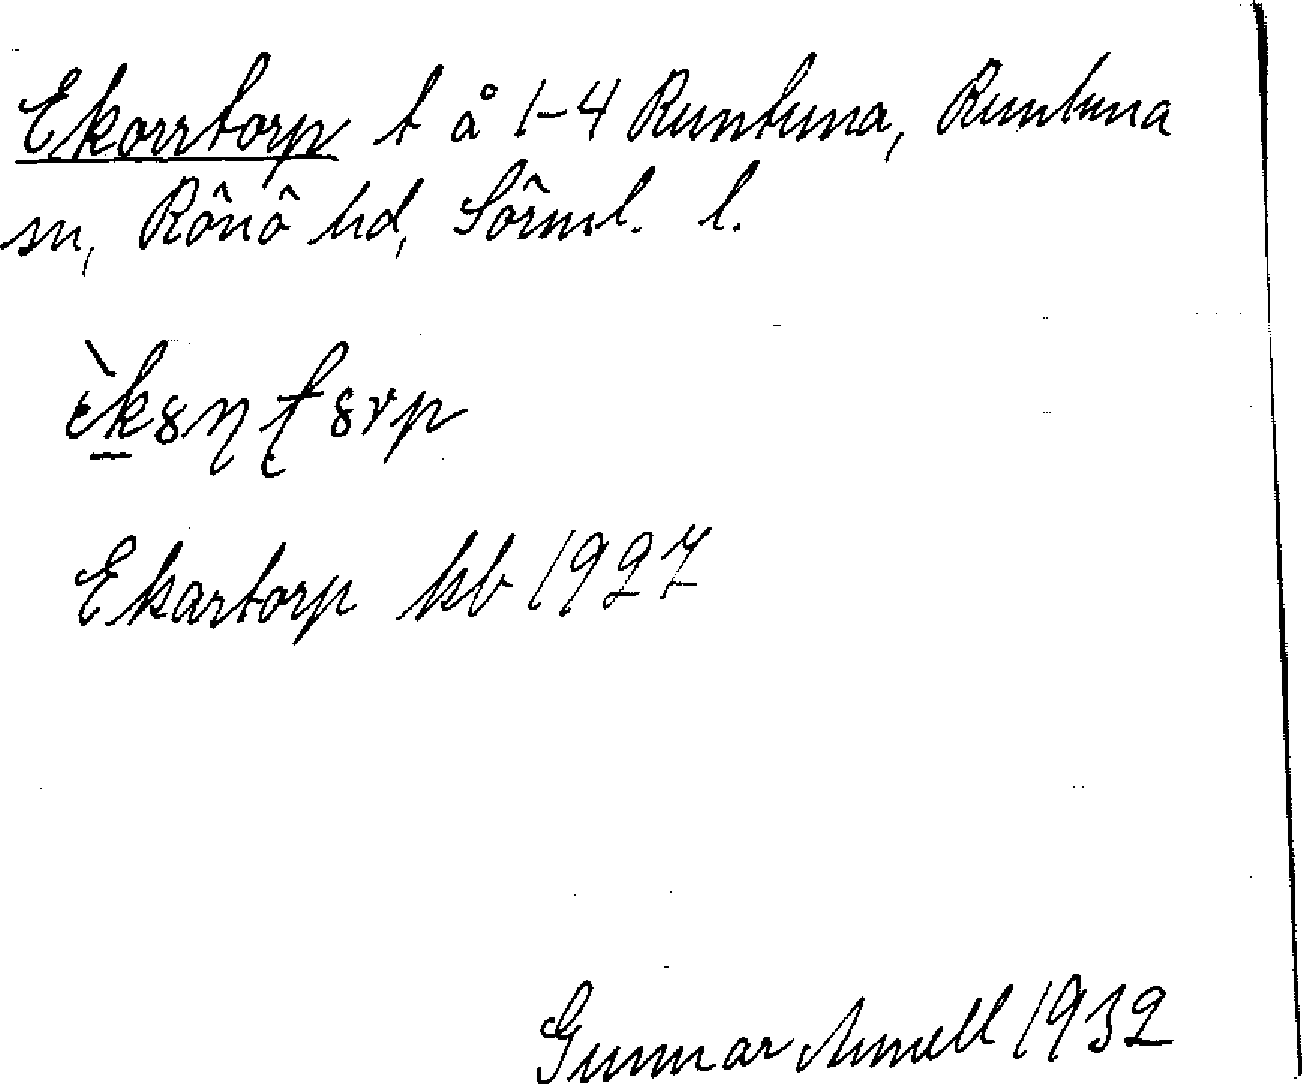 Ekorrtorp t å 1-4 Runtuna, Runtuna
sn, Rönö hd, Sörml. l.
Ekartorp kb 1927
Gunnar 1932